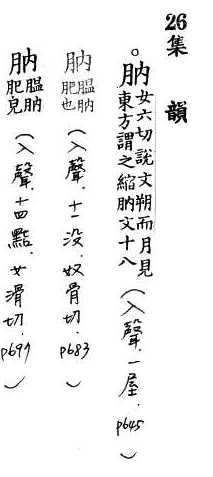 26 集 韻
。肭 女六切說文朔而月見東方謂之縮肭文十八(入聲.一屋.p645)
肭 膃肭肥也(入聲.十一没.奴骨切.p683)
肭 膃肭肥皃(入聲.十四黠.女滑切.p697)